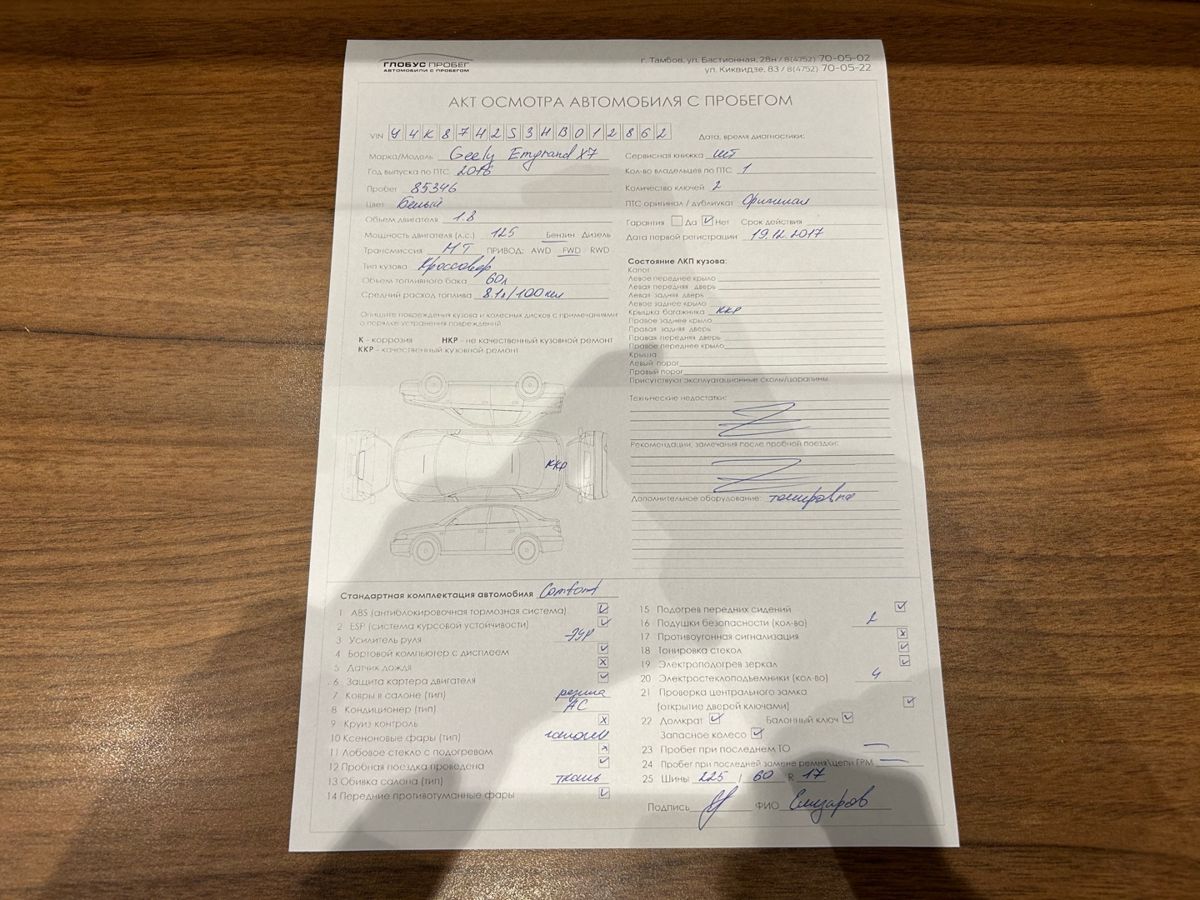 ГЛОБУС ПРОБЕГ
АВТОМОБИЛИ С ПРОБЕГОМ
г. Тамбов, ул. Бастионная, 28н / 8(4752) 70-05-02
ул. Киквидзе, 83 / 8(4752) 70-05-22
АКТ ОСМОТРА АВТОМОБИЛЯ С ПРОБЕГОМ
VIN Y4K8742S3HB012862
Дата, время диагностики:
Марка/Модель Geely Emgrand X7
Год выпуска по ПТС 2016
Пробег 85346
Цвет Белый
Объем двигателя 1.8
Мощность двигателя (л.с.) 125 Бензин Дизель
Трансмиссия МТ ПРИВОД: AWD FWD RWD
Тип кузова Кроссовер
Объем топливного бака 60л
Средний расход топлива 8.1л/100км
Сервисная книжка шт
Кол-во владельцев по ПТС 1
Количество ключей 2
ПТС оригинал / дубликат Оригинал
Гарантия Да Нет Срок действия
Дата первой регистрации 19.12.2017
Опишите повреждения кузова и колесных дисков с примечаниями
о порядке устранения повреждений
К - коррозия НКР - не качественный кузовной ремонт
ККР - качественный кузовной ремонт
ККР
Состояние ЛКП кузова:
Капот
Левое переднее крыло
Левая передняя дверь
Левая задняя дверь
Левое заднее крыло
Крышка багажника ККР
Правое заднее крыло
Правая задняя дверь
Правая передняя дверь
Правое переднее крыло
Крыша
Левый порог
Правый порог
Присутствуют эксплуатационные сколы/царапины
Технические недостатки:
Рекомендации, замечания после пробной поездки:
Дополнительное оборудование: тонировка
Стандартная комплектация автомобиля Comfort
1 ABS (антиблокировочная тормозная система)
2 ESP (система курсовой устойчивости)
3 Усилитель руля ЭУР
4 Бортовой компьютер с дисплеем
5 Датчик дождя
6 Защита картера двигателя
7 Ковры в салоне (тип) резина
8 Кондиционер (тип) АС
9 Круиз контроль
10 Ксеноновые фары (тип) галоген
11 Лобовое стекло с подогревом
12 Пробная поездка проведена
13 Обивка салона (тип) ткань
14 Передние противотуманные фары
15 Подогрев передних сидений
16 Подушки безопасности (кол-во) 2
17 Противоугонная сигнализация
18 Тонировка стекол
19 Электроподогрев зеркал
20 Электростеклоподъемники (кол-во) 4
21 Проверка центрального замка
(открытие дверей ключами)
22 Домкрат Балонный ключ
Запасное колесо
23 Пробег при последнем ТО —
24 Пробег при последней замене ремня\цепи ГРМ —
25 Шины 225 / 60 R 17
Подпись ФИО